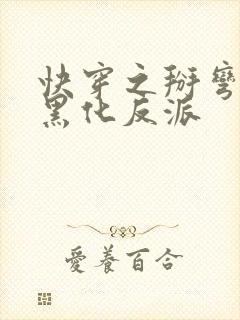 快穿之掰彎
黑化反派
愛養百合